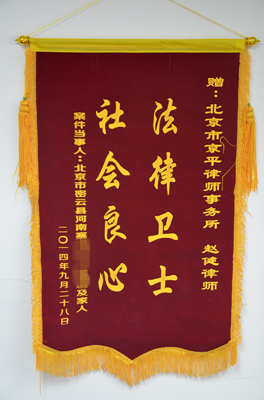 赠：北京市京平律师事务所 赵健律师
法律卫士
社会良心
案件当事人：北京市密云县河南寨 及家人
二〇一四年九月二十八日